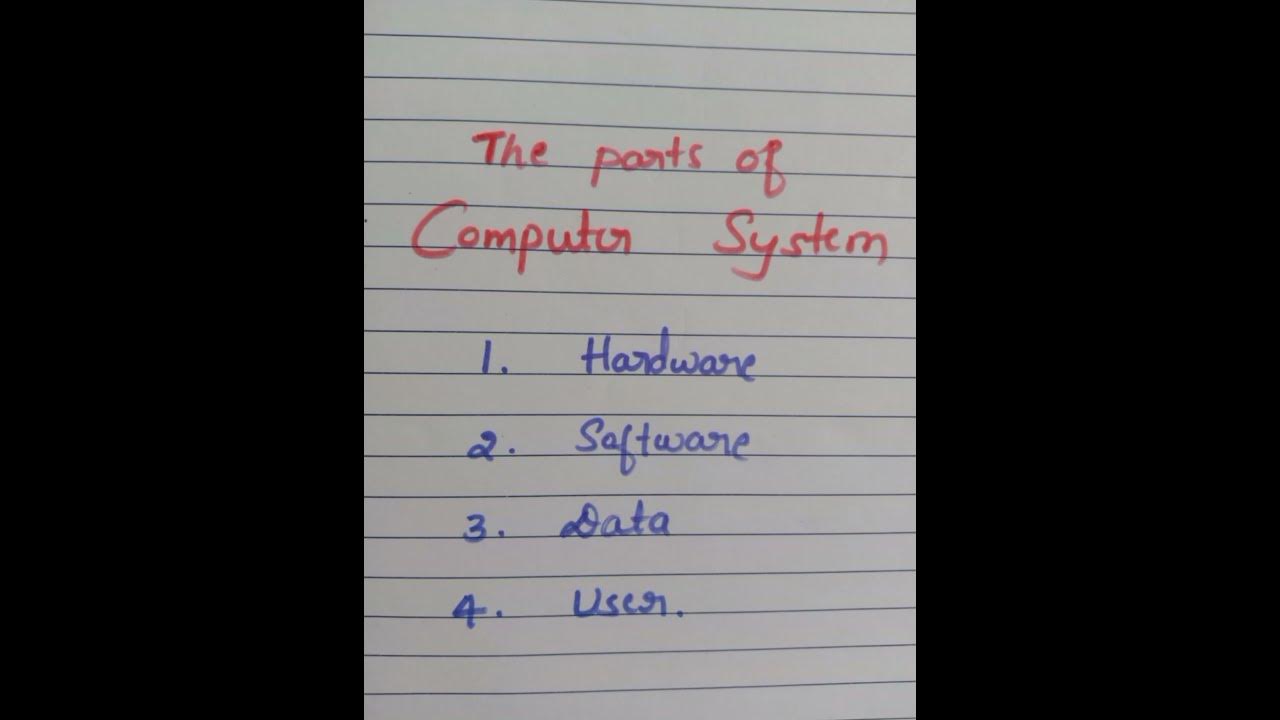 The parts of
Computer System
1. Hardware
2. Software
3. Data
4. User.